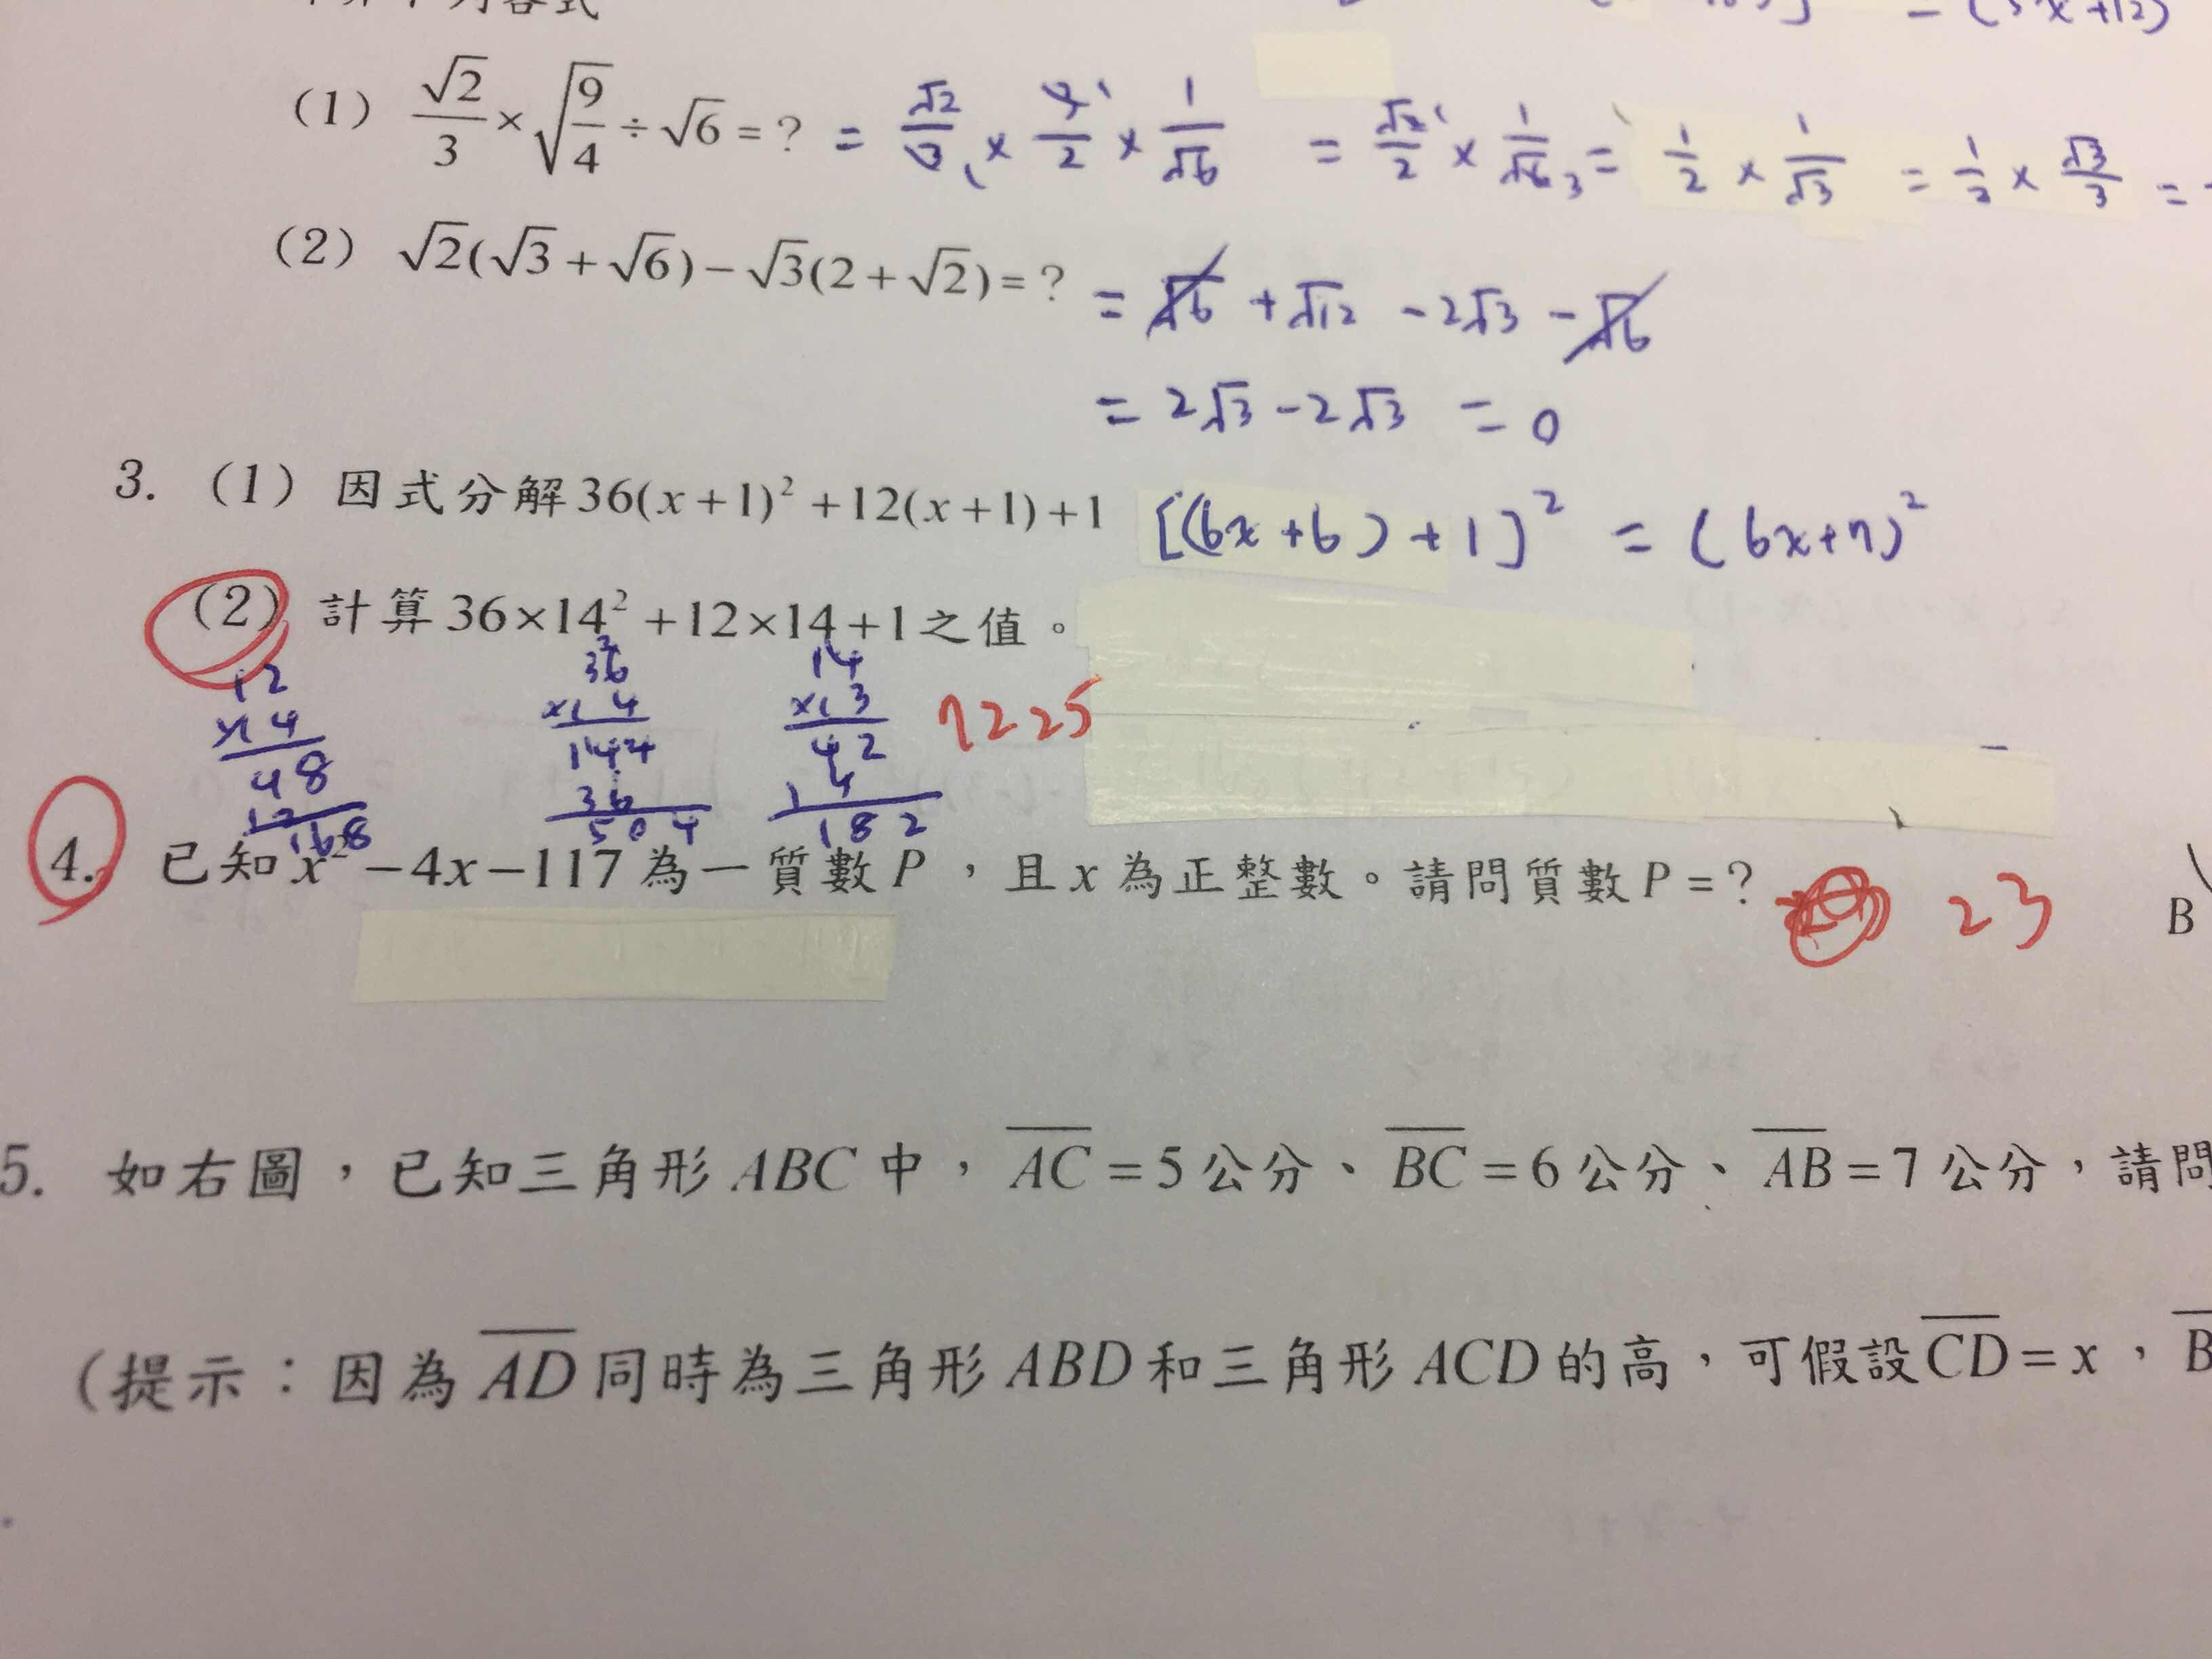 (1) √2/3 × √(9/4) ÷ √6 = ? = √2/3 × 3/2 × 1/√6 = √2/2 × 1/√6 = 1/2 × 1/√3 = 1/2 × √3/3 =
(2) √2(√3+√6)−√3(2+√2)=? = √6 + √12 − 2√3 − √6
= 2√3 − 2√3 = 0
3. (1) 因式分解36(x+1)²+12(x+1)+1 [(6x+6)+1]² = (6x+7)²
(2) 計算36×14²+12×14+1之值。
12 36 14
×14 ×14 ×13 7225
48 144 42
12 36 14
168 504 182
4. 已知x²−4x−117為一質數P，且x為正整數。請問質數P=? 23
B
5. 如右圖，已知三角形ABC中，AC=5公分、BC=6公分、AB=7公分，請問
(提示：因為AD同時為三角形ABD和三角形ACD的高，可假設CD=x，B